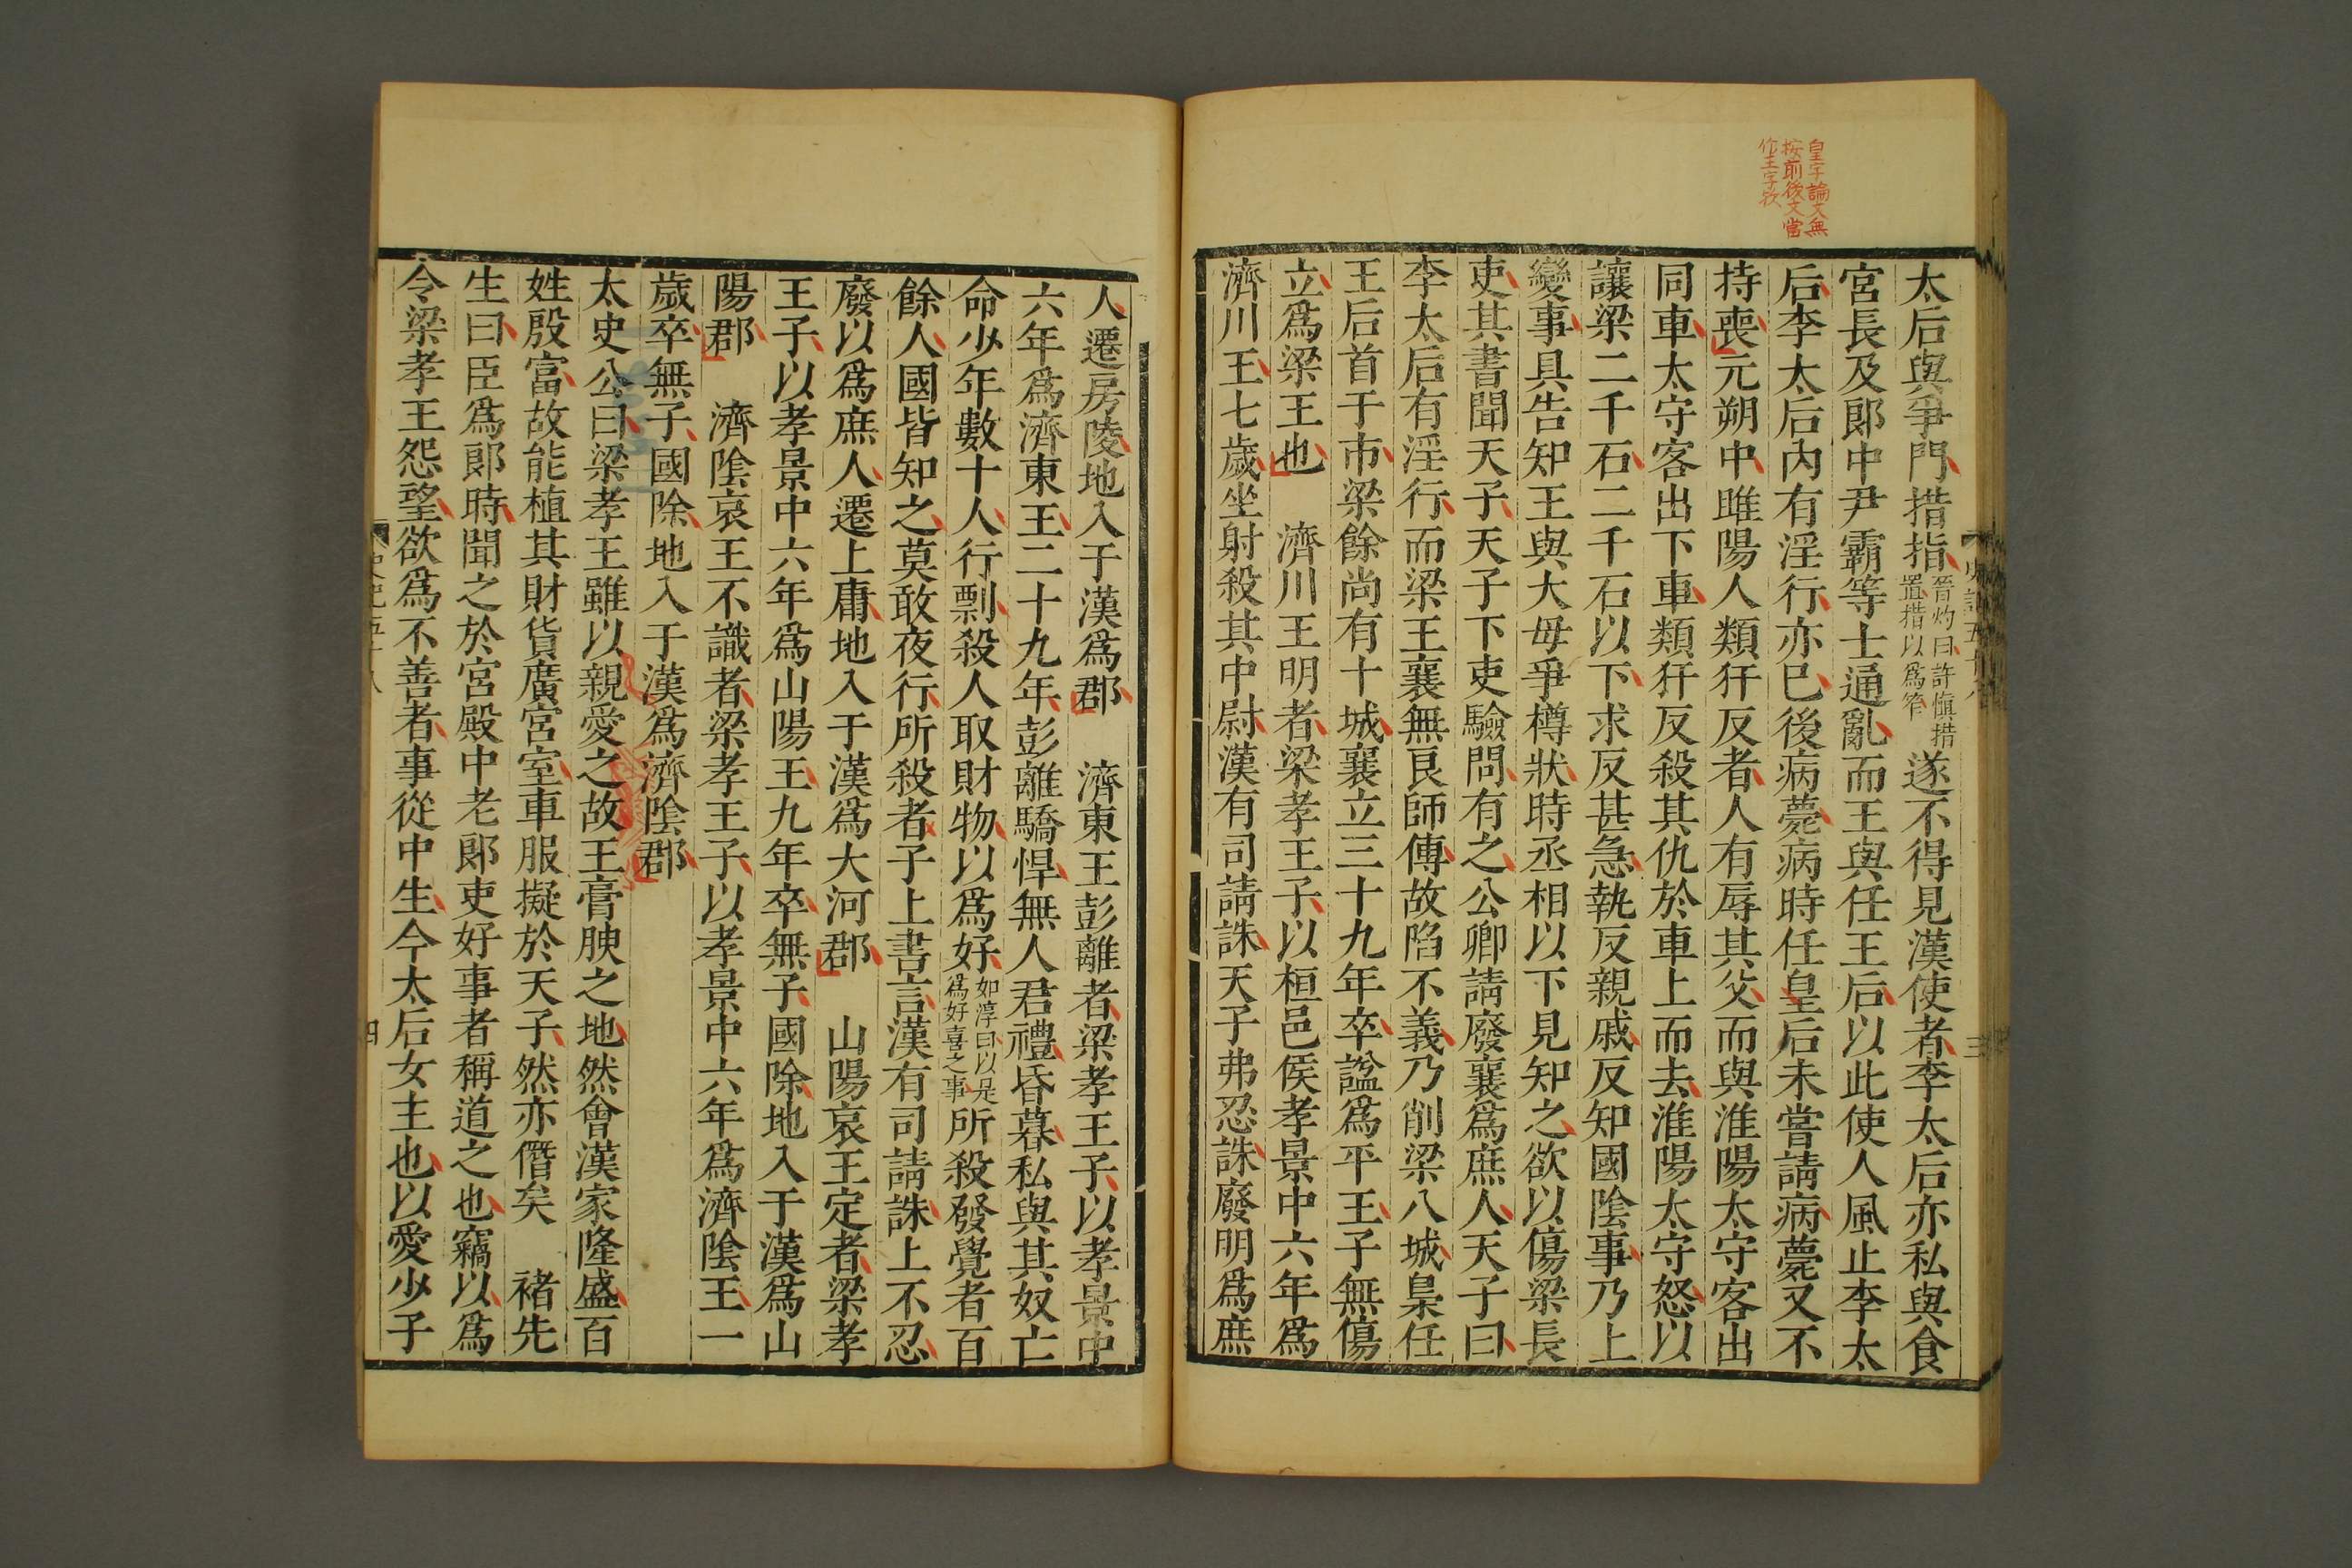 皇字論文無
按前後文當
作王字較
太后與爭門措指晉灼曰許愼措置措以爲笮遂不得見漢使者李太后亦私與食
宮長及郞中尹霸等士通亂而王與任王后以此使人風止李太
后李太后內有淫行亦已後病薨病時任皇后未嘗請病薨又不
持喪元朔中睢陽人類犴反者人有辱其父而與淮陽太守客出
同車太守客出下車類犴反殺其仇於車上而去淮陽太守怒以
讓梁二千石二千石以下求反甚急執反親戚反知國陰事乃上
變事具告知王與大母爭樽狀時丞相以下見知之欲以傷梁長
吏其書聞天子天子下吏驗問有之公卿請廢襄爲庶人天子曰
李太后有淫行而梁王襄無良師傅故陷不義乃削梁八城梟任
王后首于市梁餘尚有十城襄立三十九年卒諡爲平王子無傷
立爲梁王也　濟川王明者梁孝王子以桓邑侯孝景中六年爲
濟川王七歲坐射殺其中尉漢有司請誅天子弗忍誅廢明爲庶
史記五十八
三
人遷房陵地入于漢爲郡　濟東王彭離者梁孝王子以孝景中
六年爲濟東王二十九年彭離驕悍無人君禮昏暮私與其奴亡
命少年數十人行剽殺人取財物以爲好如淳曰以是爲好喜之事所殺發覺者百
餘人國皆知之莫敢夜行所殺者子上書言漢有司請誅上不忍
廢以爲庶人遷上庸地入于漢爲大河郡　山陽哀王定者梁孝
王子以孝景中六年爲山陽王九年卒無子國除地入于漢爲山
陽郡　濟陰哀王不識者梁孝王子以孝景中六年爲濟陰王一
歲卒無子國除地入于漢爲濟陰郡
太史公曰梁孝王雖以親愛之故王膏腴之地然會漢家隆盛百
姓殷富故能植其財貨廣宮室車服擬於天子然亦僭矣　褚先
生曰臣爲郞時聞之於宮殿中老郞吏好事者稱道之也竊以爲
今梁孝王怨望欲爲不善者事從中生今太后女主也以愛少子
史記五十八
四